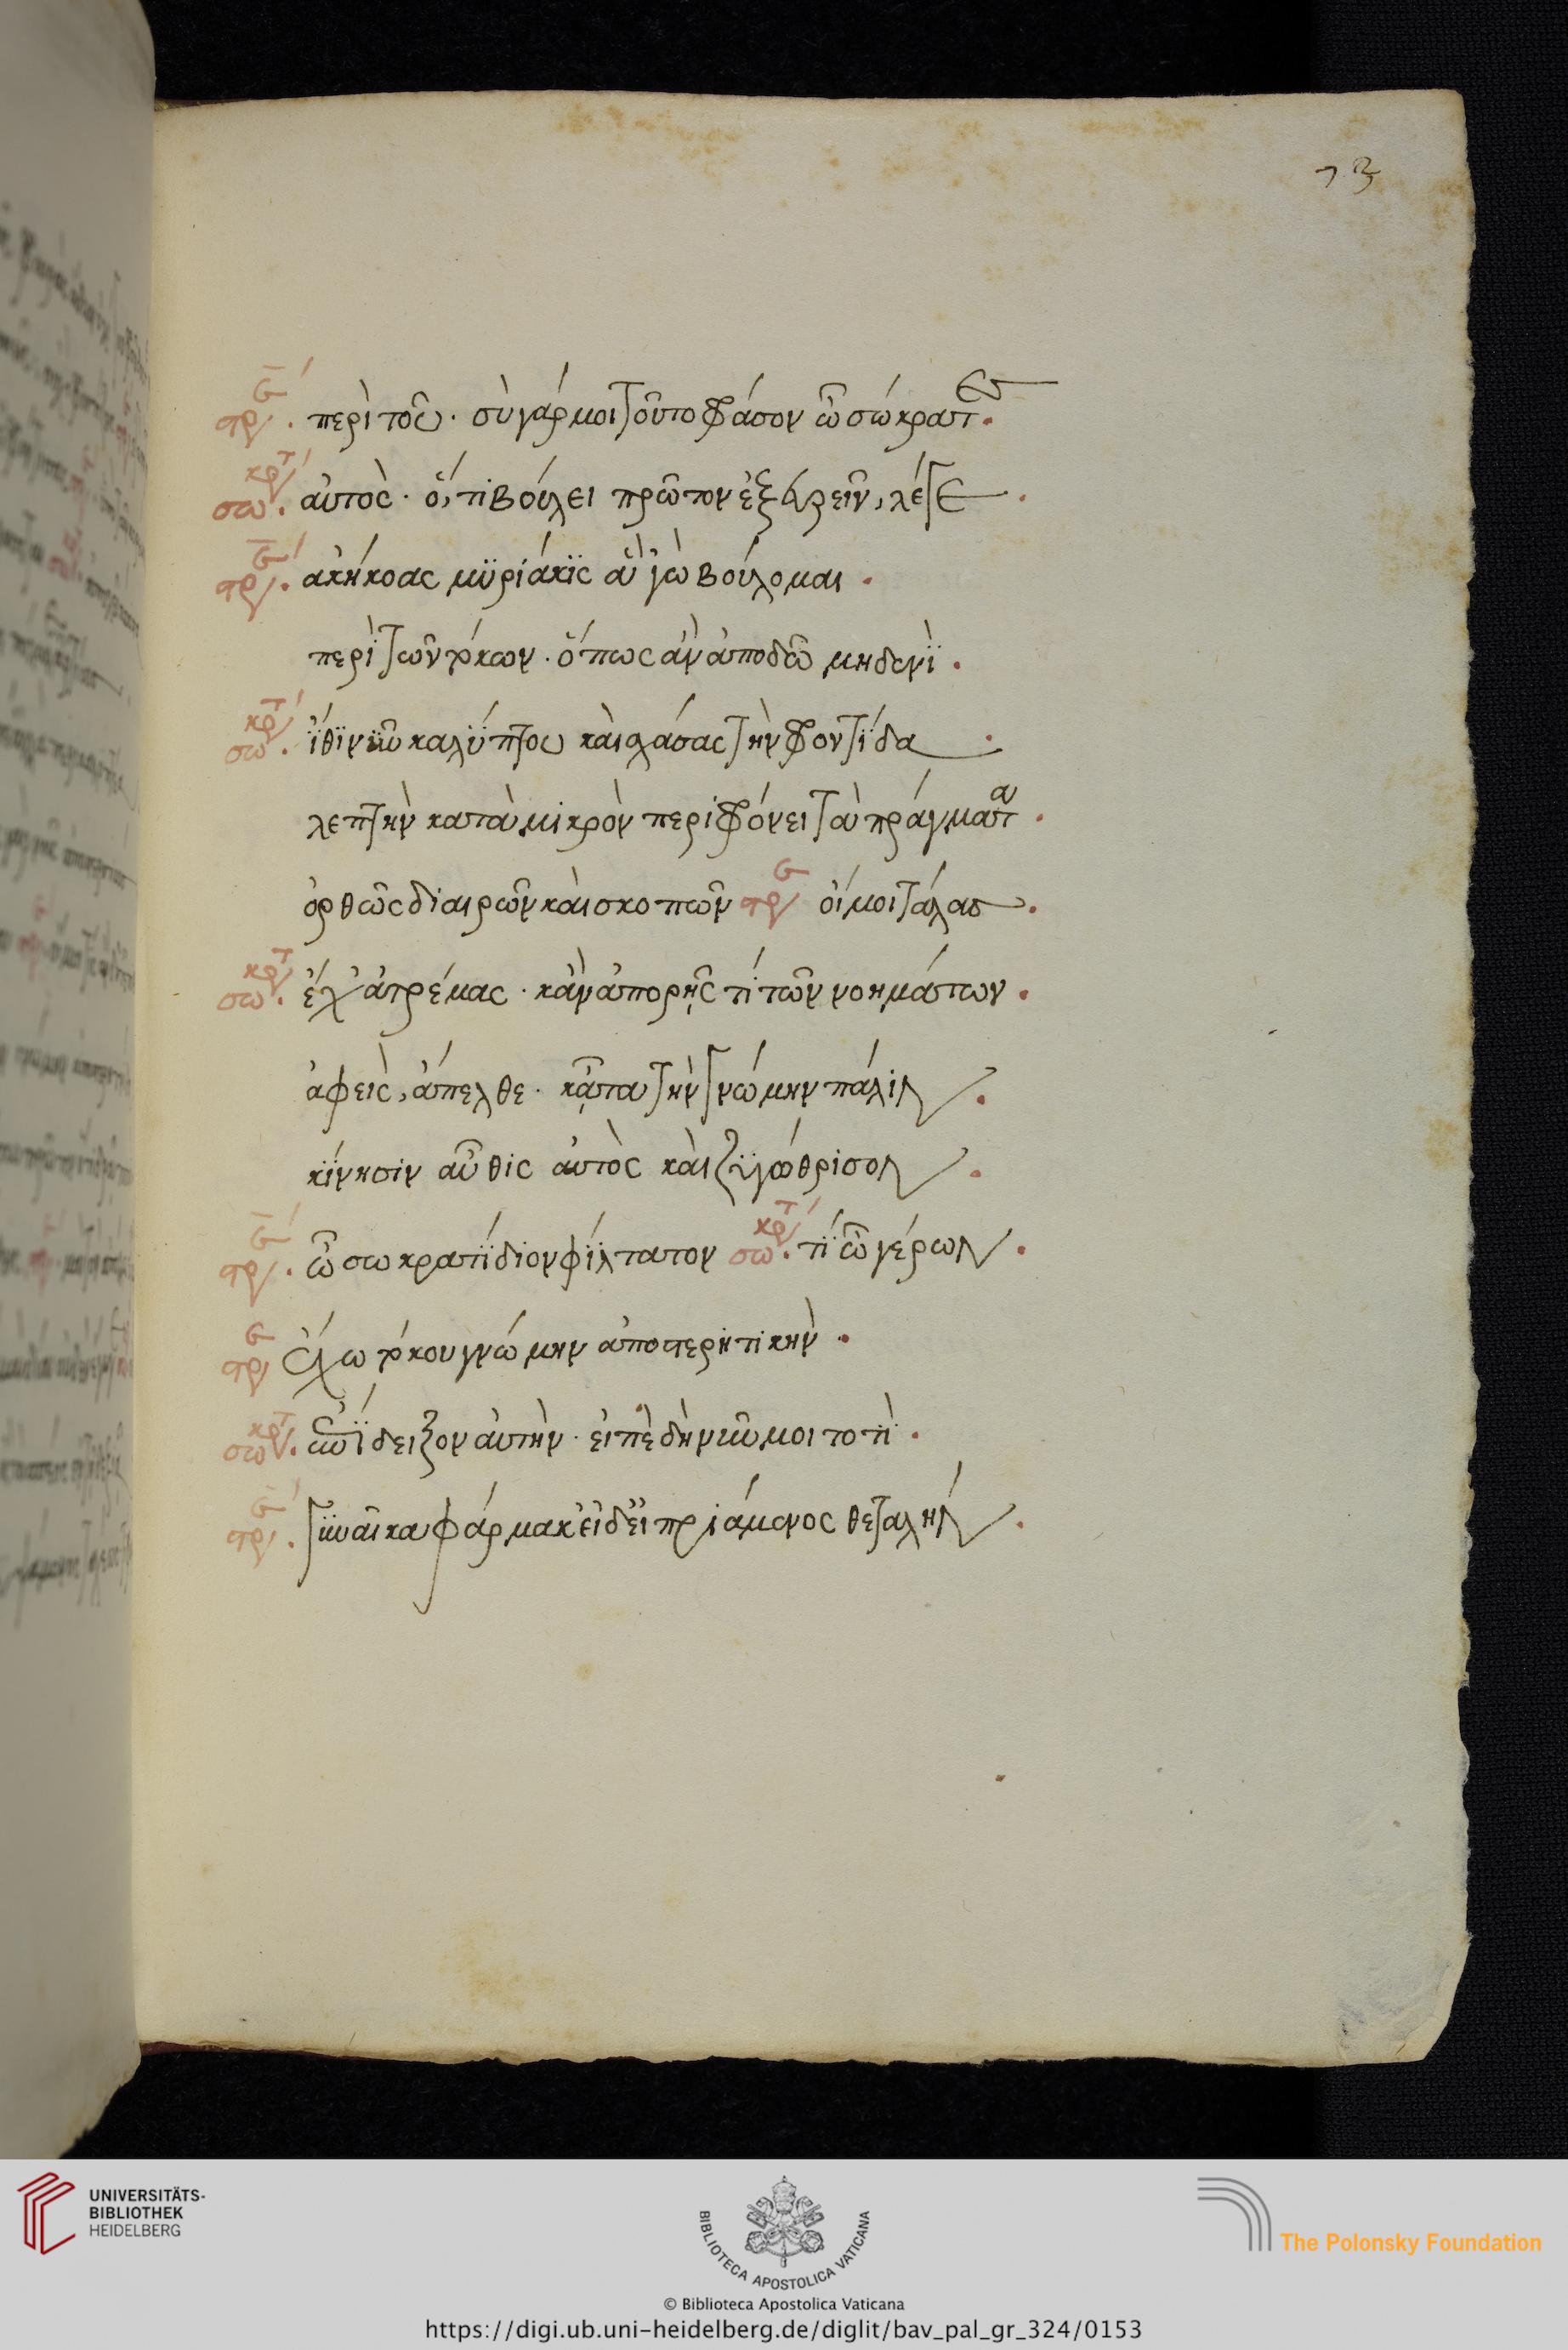 73
στρ. περὶ τοῦ. σὺ γάρ μοι τοῦτο φράσον ὦ σώκρατες.
σωκρτ. αὐτὸς. ὅ,τι βούλει πρῶτον ἐξευρεῖν, λέγε.
στρ. ἀκήκοας μϋριάκϊς ἃ 'γὼ βούλομαι.
περὶ τῶν τόκων. ὅπως ἂν ἀποδῶ μηδενϊ.
σωκρτ. ἴθϊ νῦν καλύπτου καὶ σχάσας τὴν φροντίδα
λεπτὴν κατὰ μικρὸν περιφρόνει τὰ πράγματα.
ὀρθῶς διαιρῶν καὶ σκοπῶν στρ οἴμοι τάλας.
σωκρτ. ἔχ' ἀτρέμας. κἂν ἀπορῇς τί τῶν νοημάτων.
ἀφεὶς, ἄπελθε. κᾆτα τὴν γνώμην πάλιν.
κίνησιν αὖθις αὐτὸς καὶ ζϋγώθρισον.
στρ. ὦ σωκρατίδιον φίλτατον σωκρτ. τί ὦ γέρων.
στρ ἔχω τόκου γνώμην ἀποστερητικὴν.
σωκρτ. ἐπίδειξον αὐτὴν. εἰπὲ δὴ νῦν μοι τὸ τὶ.
στρ. γυναῖκα φαρμακίδ' εἰ πριάμενος θετταλὴν.
UNIVERSITÄTS-
BIBLIOTHEK
HEIDELBERG
BIBLIOTECA APOSTOLICA VATICANA
The Polonsky Foundation
© Biblioteca Apostolica Vaticana
https://digi.ub.uni-heidelberg.de/diglit/bav_pal_gr_324/0153